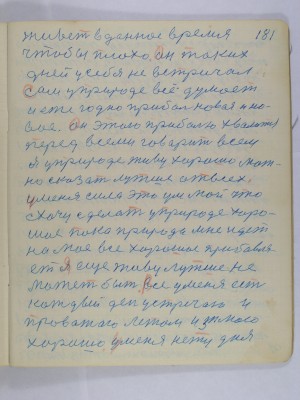 живет в денное время 181
чтобы плохо. он таких
дней у себя не встречал
Сам уприроде всё думает
и ете годно прибол новая и но-
вое. Он этого прибалю хвалится
перед всеми говорит всем
я уприроде живу хорошо мож-
но сказат лутше отвсех.
уменя сила это ум мой это
схочу сделат уприроде хоро-
шое пока природа мне идет
на мое все хорошое прибавля-
ет я еще живу лутше не
может быт, все уменя ест
каждый ден устречаю и
проважаю летом и зимою
хорошо уменя нету дня